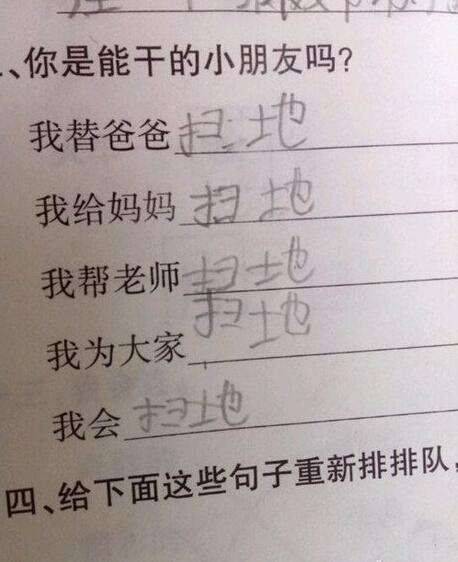 、你是能干的小朋友吗?
我替爸爸扫地
我给妈妈扫地
我帮老师扫地
我为大家扫地
我会扫地
四、给下面这些句子重新排排队,